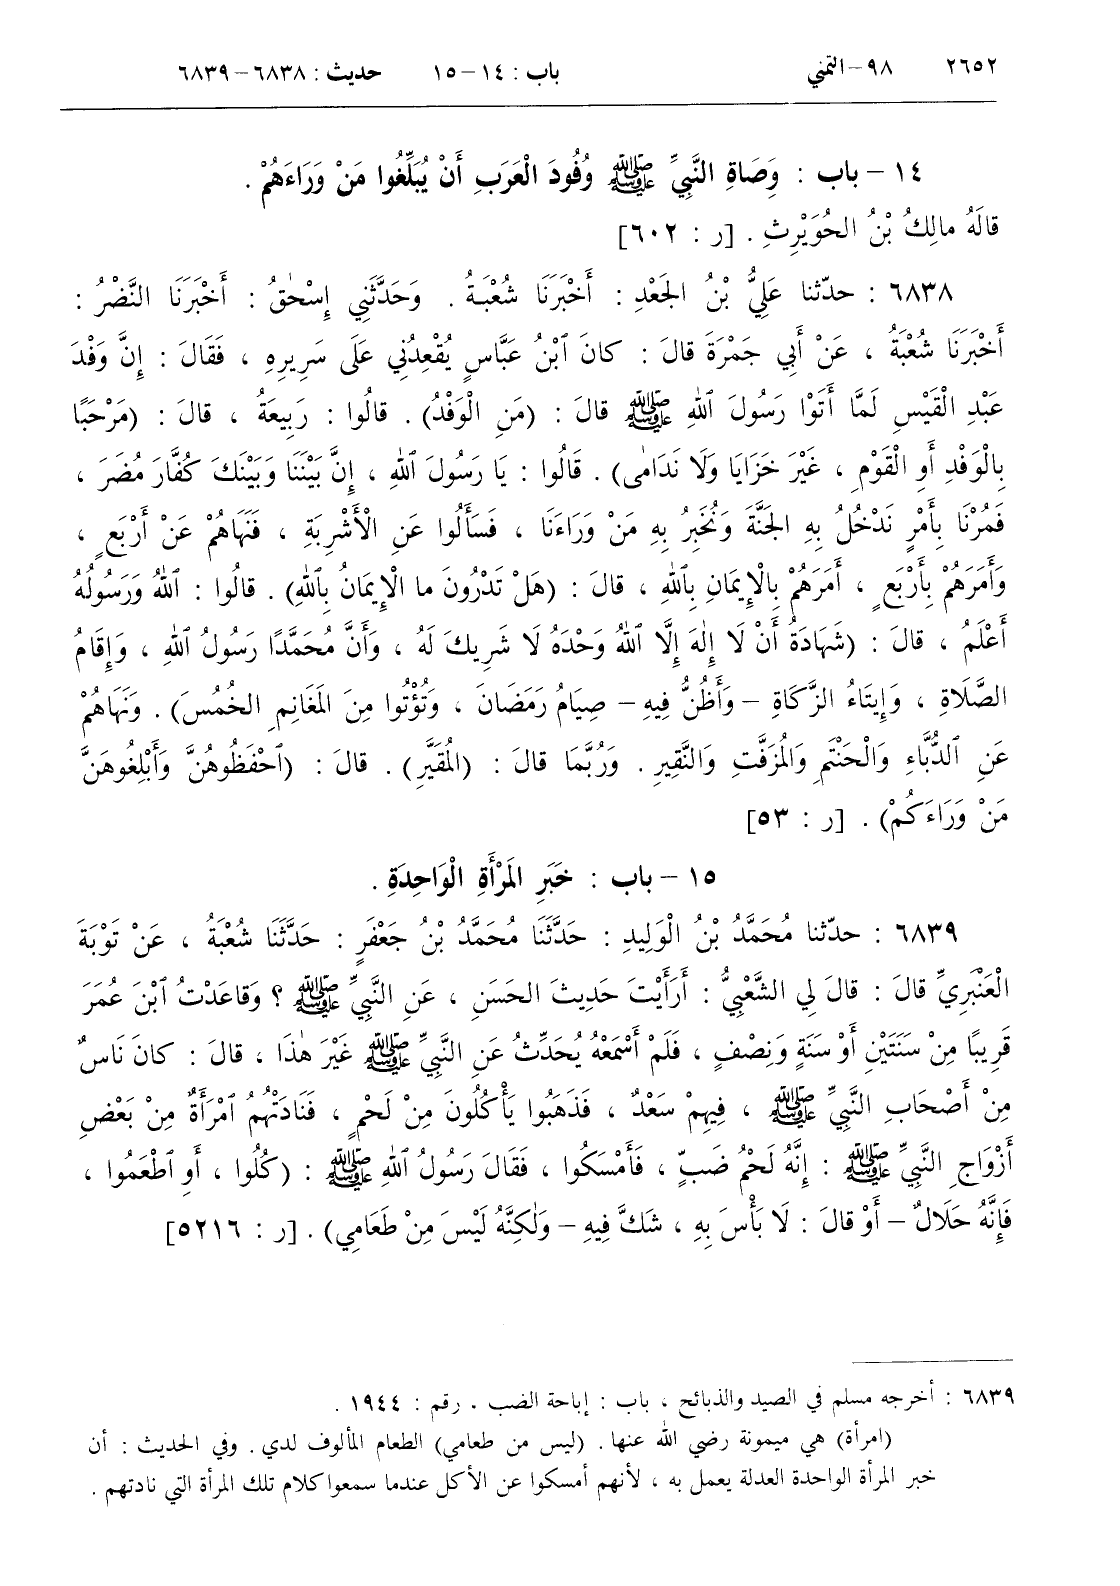 ٢٦٥٢ ٩٨-التمني باب : ١٤-١٥ حديث : ٦٨٣٨-٦٨٣٩
١٤ - باب : وَصَاةِ النَّبِيِّ ﷺ وُفُودَ الْعَرَبِ أَنْ يُبَلِّغُوا مَنْ وَرَاءَهُمْ .
قالَهُ مالِكُ بْنُ الحُوَيْرِثِ . [ر : ٦٠٢]
٦٨٣٨ : حدّثنا عَلِيُّ بْنُ الجَعْدِ : أَخْبَرَنَا شُعْبَةُ . وَحَدَّثَنِي إِسْحٰقُ : أَخْبَرَنَا النَّضْرُ :
أَخْبَرَنَا شُعْبَةُ ، عَنْ أَبِي جَمْرَةَ قالَ : كانَ ٱبْنُ عَبَّاسٍ يُقْعِدُنِي عَلَى سَرِيرِهِ ، فَقَالَ : إِنَّ وَفْدَ
عَبْدِ الْقَيْسِ لَمَّا أَتَوْا رَسُولَ ٱللهِ ﷺ قالَ : (مَنِ الْوَفْدُ) . قالُوا : رَبِيعَةُ ، قالَ : (مَرْحَبًا
بِالْوَفْدِ أَوِ الْقَوْمِ ، غَيْرَ خَزَايَا وَلَا نَدَامٰى) . قَالُوا : يَا رَسُولَ ٱللهِ ، إِنَّ بَيْنَنَا وَبَيْنَكَ كُفَّارَ مُضَرَ ،
فَمُرْنَا بِأَمْرٍ نَدْخُلُ بِهِ الجَنَّةَ وَنُخْبِرُ بِهِ مَنْ وَرَاءَنَا ، فَسَأَلُوا عَنِ الْأَشْرِبَةِ ، فَنَهَاهُمْ عَنْ أَرْبَعٍ ،
وَأَمَرَهُمْ بِأَرْبَعٍ ، أَمَرَهُمْ بِالْإِيمَانِ بِٱللهِ ، قالَ : (هَلْ تَدْرُونَ ما الْإِيمَانُ بِٱللهِ) . قالُوا : ٱللهُ وَرَسُولُهُ
أَعْلَمُ ، قالَ : (شَهَادَةُ أَنْ لَا إِلٰهَ إِلَّا ٱللهُ وَحْدَهُ لَا شَرِيكَ لَهُ ، وَأَنَّ مُحَمَّدًا رَسُولُ ٱللهِ ، وَإِقَامُ
الصَّلَاةِ ، وَإِيتَاءُ الزَّكَاةِ - وَأَظُنُّ فِيهِ - صِيَامُ رَمَضَانَ ، وَتُؤْتُوا مِنَ المَغَانِمِ الخُمُسَ) . وَنَهَاهُمْ
عَنِ ٱلدُّبَّاءِ وَالْحَنْتَمِ وَالمُزَفَّتِ وَالنَّقِيرِ . وَرُبَّمَا قالَ : (المُقَيَّرِ) . قالَ : (ٱحْفَظُوهُنَّ وَأَبْلِغُوهُنَّ
مَنْ وَرَاءَكُمْ) . [ر : ٥٣]
١٥ - باب : خَبَرِ المَرْأَةِ الْوَاحِدَةِ .
٦٨٣٩ : حدّثنا مُحَمَّدُ بْنُ الْوَلِيدِ : حَدَّثَنَا مُحَمَّدُ بْنُ جَعْفَرٍ : حَدَّثَنَا شُعْبَةُ ، عَنْ تَوْبَةَ
الْعَنْبَرِيِّ قالَ : قالَ لِي الشَّعْبِيُّ : أَرَأَيْتَ حَدِيثَ الحَسَنِ ، عَنِ النَّبِيِّ ﷺ ؟ وَقاعَدْتُ ٱبْنَ عُمَرَ
قَرِيبًا مِنْ سَنَتَيْنِ أَوْ سَنَةٍ وَنِصْفٍ ، فَلَمْ أَسْمَعْهُ يُحَدِّثُ عَنِ النَّبِيِّ ﷺ غَيْرَ هٰذَا ، قالَ : كانَ نَاسٌ
مِنْ أَصْحَابِ النَّبِيِّ ﷺ ، فِيهِمْ سَعْدٌ ، فَذَهَبُوا يَأْكُلُونَ مِنْ لَحْمٍ ، فَنَادَتْهُمُ ٱمْرَأَةٌ مِنْ بَعْضِ
أَزْوَاجِ النَّبِيِّ ﷺ : إِنَّهُ لَحْمُ ضَبٍّ ، فَأَمْسَكُوا ، فَقَالَ رَسُولُ ٱللهِ ﷺ : (كُلُوا ، أَوِ ٱطْعَمُوا ،
فَإِنَّهُ حَلَالٌ - أَوْ قالَ : لَا بَأْسَ بِهِ ، شَكَّ فِيهِ - وَلٰكِنَّهُ لَيْسَ مِنْ طَعَامِي) . [ر : ٥٢١٦]
٦٨٣٩ : أخرجه مسلم في الصيد والذبائح ، باب : إباحة الضب . رقم : ١٩٤٤ .
(امرأة) هي ميمونة رضي الله عنها . (ليس من طعامي) الطعام المألوف لدي . وفي الحديث : أن
خبر المرأة الواحدة العدلة يعمل به ، لأنهم أمسكوا عن الأكل عندما سمعوا كلام تلك المرأة التي نادتهم .